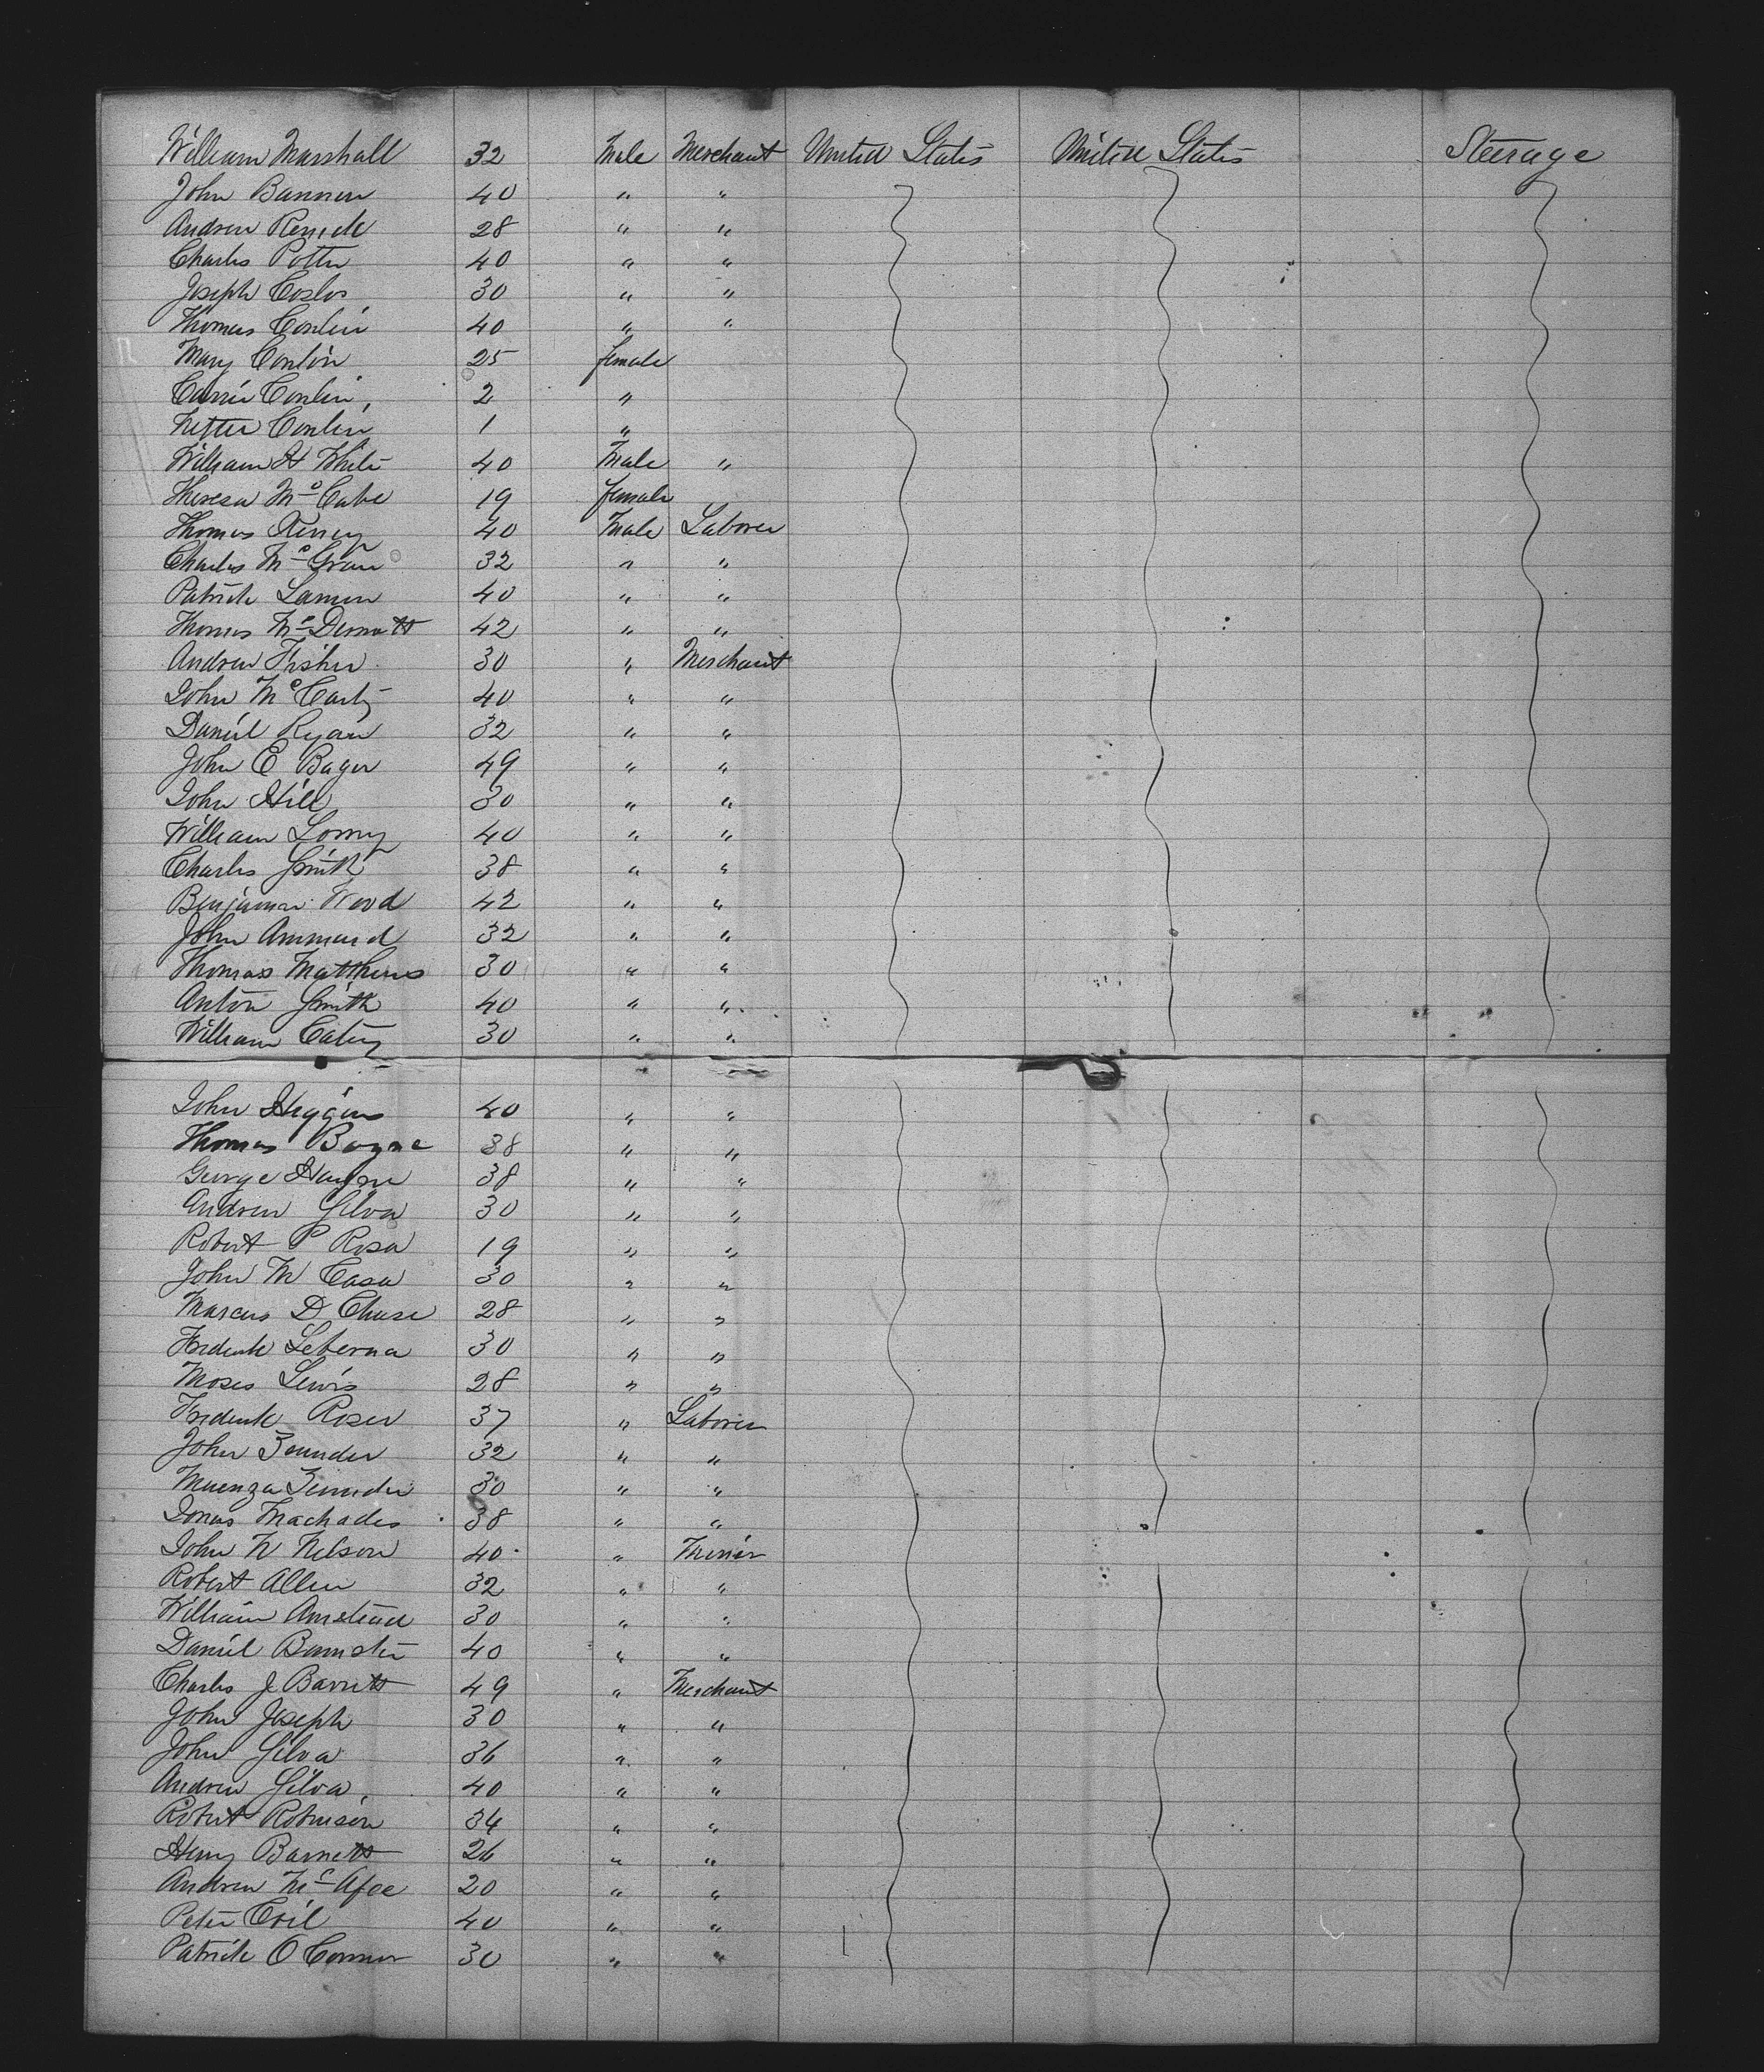 William Marshall 32 Male Merchant United States United States Steerage
John Bannon 40 " "
Andrew Renick 28 " "
Charles Potter 40 " "
Joseph Coslos 30 " "
Thomas Conlin 40 " "
Mary Conlin 25 female
Carrie Conlin 2 "
Conlin 1 "
William H White 40 Male "
Theresa McCabe 19 female
Thomas Kenny 40 Male Laborer
Charles McGran 32 " "
Patrick Lamon 40 " "
Thomas McDermott 42 " "
Andrew Fisher 30 " Merchant
John McCarty 40 " "
Daniel Ryan 32 " "
John E Bager 49 " "
John Hill 30 " "
William Lorny 40 " "
Charles Smith 38 " "
Benjamin Wood 42 " "
John Ammand 32 " "
Thomas Matthews 30 " "
Anton Smith 40 " "
William Caty 30 " "
John Higgins 40 " "
Thomas Bogne 38 " "
George 38 " "
Andrew Silva 30 " "
Robert P Rosa 19 " "
John M Casa 30 " "
Marcus D Chase 28 " "
Frederick Leberna 30 " "
Moses Lewis 28 " "
Frederick Roser 37 " Laborer
John Zounder 32 " "
30 " "
Jonas Machades 38 " "
John N Nelson 40 " Miner
Robert Allen 32 " "
William Amstead 30 " "
Daniel Bamster 40 " "
Charles J Barrett 49 " Merchant
John Joseph 30 " "
John Silva 36 " "
Andrew Silva 40 " "
Robert Robinson 34 " "
Henry Barnett 26 " "
Andrew McAfee 20 " "
Peter Coil 40 " "
Patrick O Connor 30 " "